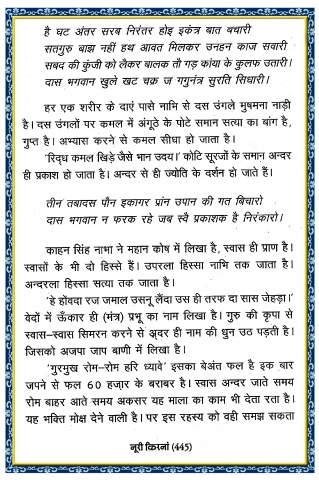 है घट अंतर सरब निरंतर होइ इकंत्र बात बचारी
सतगुरु बाझ नहीं हथ आवत मिलकर उनहन काज सवारी
सबद की कुंजी को लेकर बालक तौ गड़ कांया के कुलफ उतारी।
दास भगवान खुले खट चक्र ज गगुनंत्र सुरति सिधारी।
हर एक शरीर के दाएं पासे नाभि से दस उंगले मुषमना नाड़ी
है। दस उंगलों पर कमल में अंगूठे के पोटे समान सत्या का बांग है,
गुप्त है। अभ्यास करने से कमल सीधा हो जाता है।
'रिद्ध कमल खिड़े जैसे भान उदया।' कोटि सूरजों के समान अन्दर
ही प्रकाश हो जाता है। अन्दर से ही ज्योति के दर्शन हो जाते हैं।
तीन तबादस पौन इकागर प्रांन उपान की गत बिचारो
दास भगवान न फरक रहे जब स्वै प्रकाशक है निरंकारो।
काहन सिंह नाभा ने महान कोष में लिखा है, स्वास ही प्राण है।
स्वासों के भी दो हिस्से हैं। उपरला हिस्सा नाभि तक जाता है।
अन्दरला हिस्सा सत्या तक जाता है।
'हे होंवदा रज जमाल उसनू लैंदा उस ही तरफ दा सास जेहड़ा।'
वेदों में ऊँकार ही (मंत्र) प्रभू का नाम लिखा है। गुरु की कृपा से
स्वास-स्वास सिमरन करने से अ्दर ही नाम की धुन उठ पड़ती है।
जिसको अजपा जाप बाणी में लिखा है।
'गुरमुख रोम-रोम हरि ध्यावे' इसका बेअंत फल है इक बार
जपने से फल 60 हज़ार के बराबर है। स्वास अन्दर जाते समय
रोम बाहर आते समय अकसर यह माला का काम भी देता रता है।
यह भक्ति मोक्ष देने वाली है। पर इस रहस्य को वही समझ सकता
नूरी किरनां (445)